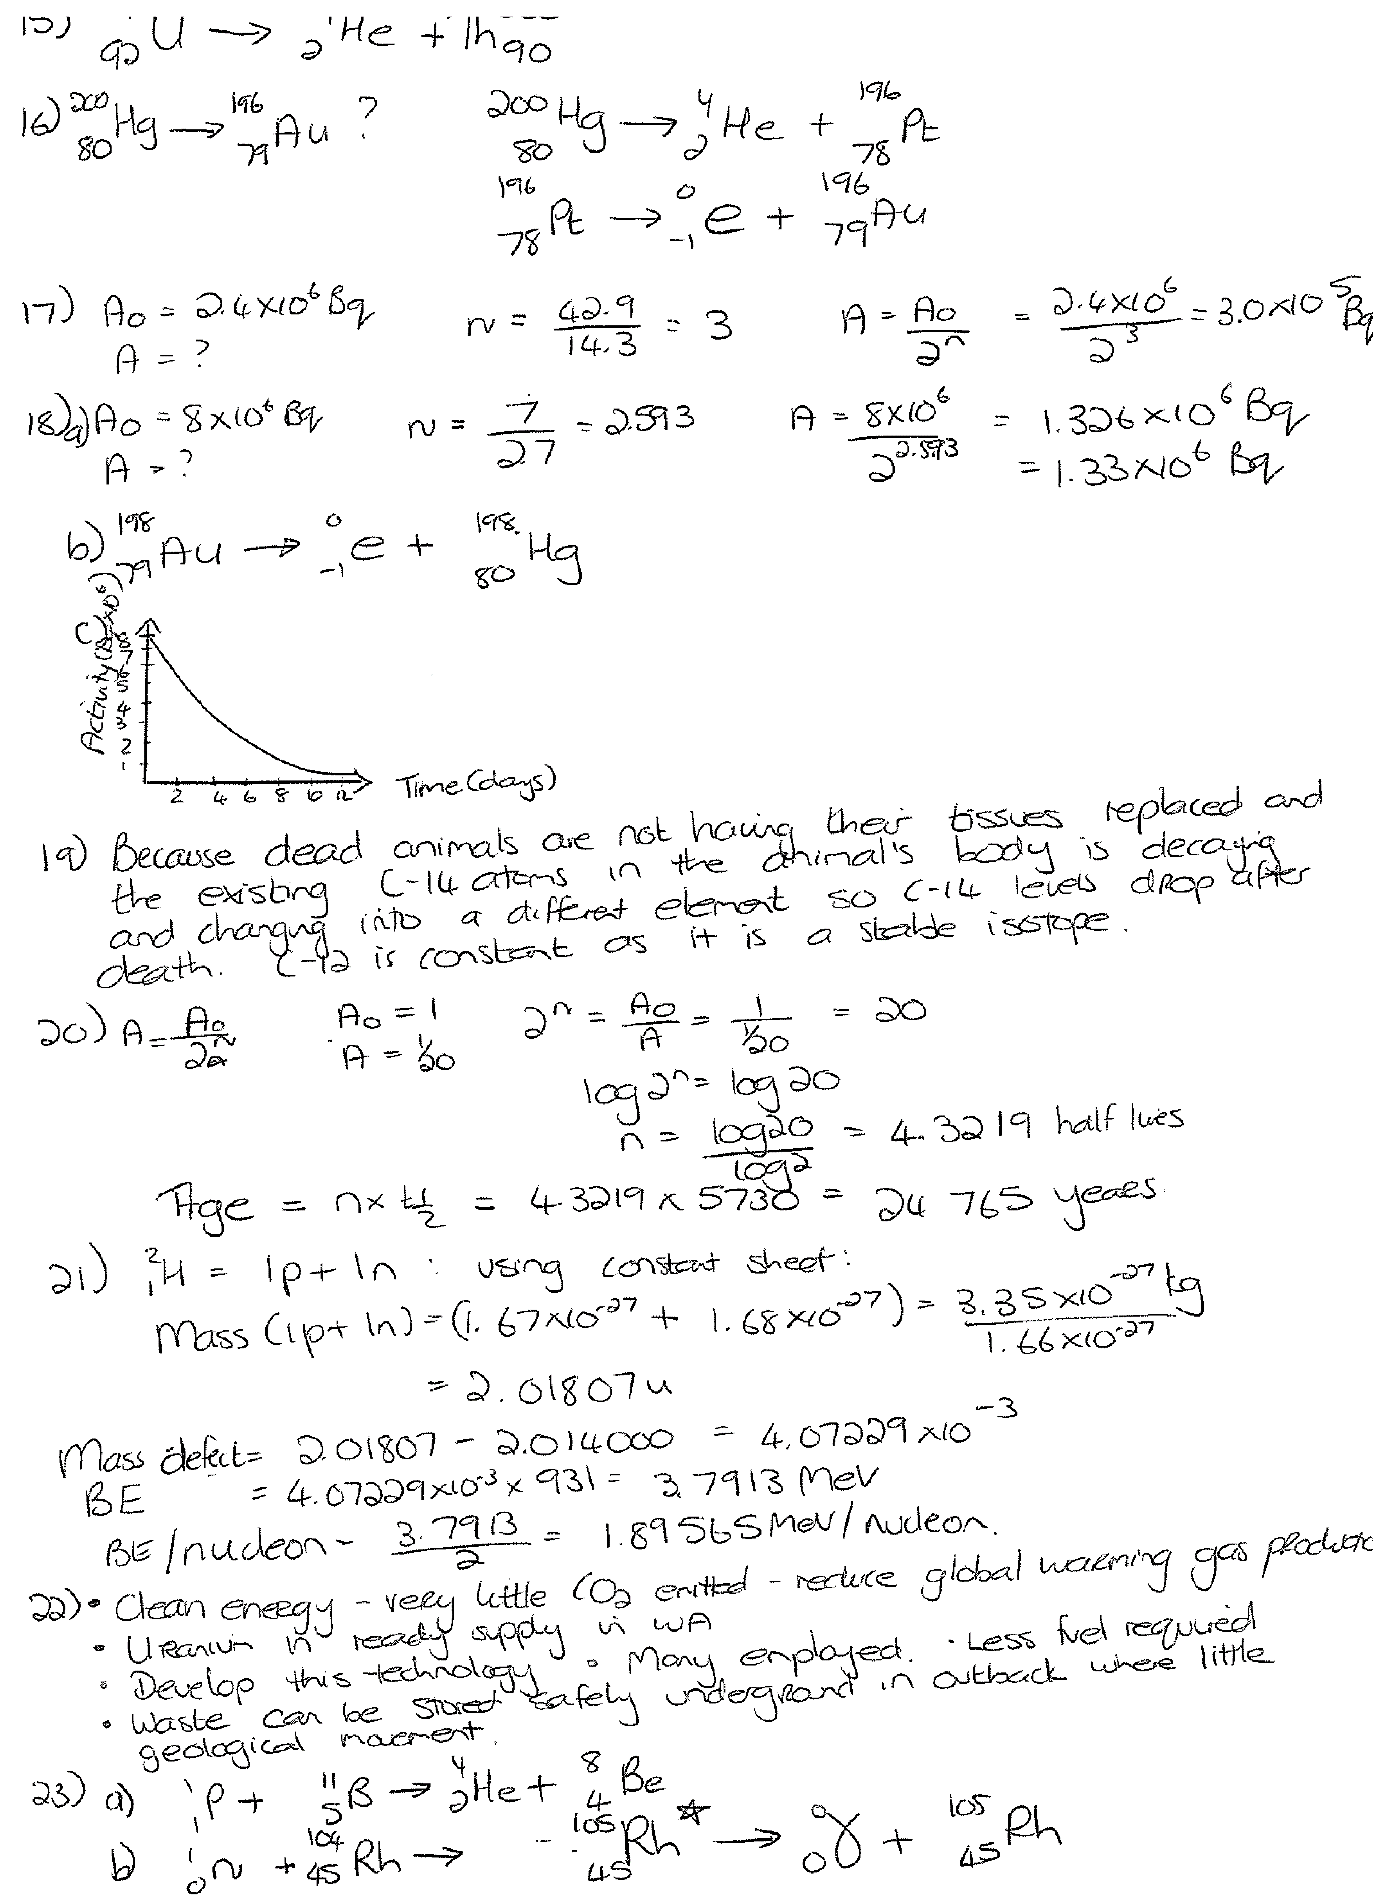 15) ₉₂U → ₂He + Th₉₀
16) ²⁰⁰₈₀Hg → ¹⁹⁶₇₉Au ? ²⁰⁰₈₀Hg → ⁴₂He + ¹⁹⁶₇₈Pt
¹⁹⁶₇₈Pt → ⁰₋₁e + ¹⁹⁶₇₉Au
17) A₀ = 2.4×10⁶ Bq n = 42.9/14.3 = 3 A = A₀/2ⁿ = 2.4×10⁶/2³ = 3.0×10⁵ Bq
A = ?
18) a) A₀ = 8×10⁶ Bq n = 7/2.7 = 2.593 A = 8×10⁶/2^2.593 = 1.326×10⁶ Bq
A = ? = 1.33×10⁶ Bq
b) ¹⁹⁸₇₉Au → ⁰₋₁e + ¹⁹⁸₈₀Hg
c) Activity (Bq ×10⁶)
8
7
6
5
4
3
2
1
2 4 6 8 10 12 Time (days)
19) Because dead animals are not having their tissues replaced and
the existing C-14 atoms in the animal's body is decaying
and changing into a different element so C-14 levels drop after
death. C-12 is constant as it is a stable isotope.
20) A = A₀/2ⁿ A₀ = 1 2ⁿ = A₀/A = 1/(1/20) = 20
A = 1/20
log 2ⁿ = log 20
n = log20/log2 = 4.3219 half lives
Age = n × t½ = 4.3219 × 5730 = 24 765 years
21) ²₁H = 1p + 1n : using constant sheet :
Mass (1p + 1n) = (1.67×10⁻²⁷ + 1.68×10⁻²⁷) = 3.35×10⁻²⁷ kg/1.66×10⁻²⁷
= 2.01807u
Mass defect = 2.01807 - 2.014000 = 4.07229×10⁻³
BE = 4.07229×10⁻³ × 931 = 3.7913 MeV
BE/nucleon - 3.7913/2 = 1.89565 MeV/nucleon.
22) • Clean energy - very little CO₂ emitted - reduce global warming gas
• Uranium in ready supply in WA
• Develop this technology • Many employed. • Less fuel required
• Waste can be stored safely underground in outback where little
geological movement.
23) a) ¹₁p + ¹¹₅B → ⁴₂He + ⁸₄Be
b) ¹₀n + ¹⁰⁴₄₅Rh → ¹⁰⁵₄₅Rh* → ⁰₀γ + ¹⁰⁵₄₅Rh